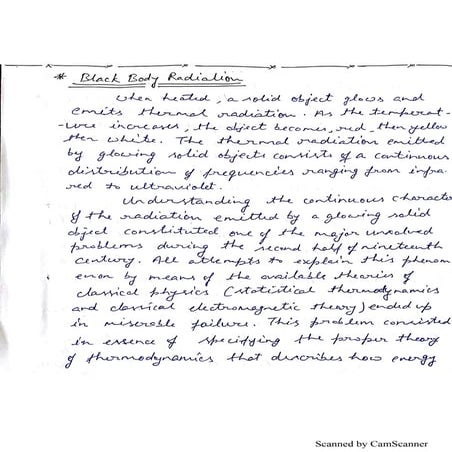 * Black Body Radiation
When heated, a solid object glows and
emits thermal radiation. As the temperat-
-ure increases, the object becomes red, then yellow
then white. The thermal radiation emitted
by glowing solid objects consists of a continuous
distribution of frequencies ranging from infra
red to ultraviolet.
Understanding the continuous character
of the radiation emitted by a glowing solid
object constituted one of the major unsolved
problems during the second half of nineteenth
century. All attempts to explain this phenom
enon by means of the available theories of
classical physics (statistical thermodynamics
and classical electromagnetic theory) ended up
in miserable failure. This problem consisted
in essence of specifying the proper theory
of thermodynamics that describes how energy
Scanned by CamScanner